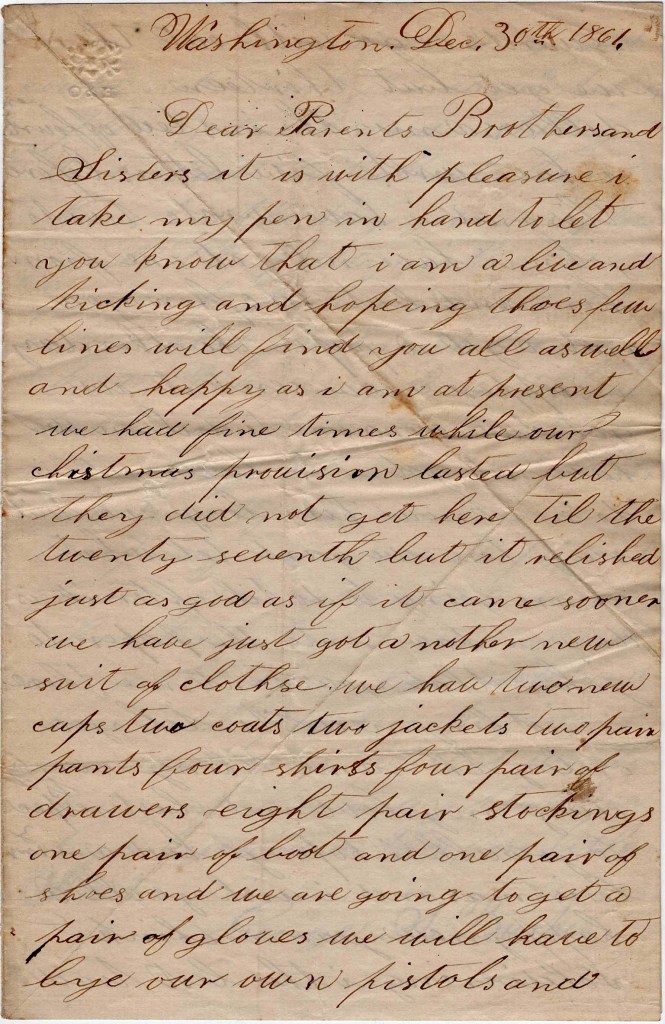 Washington. Dec. 30th 1861.
Dear Parents Brothers and
Sisters it is with pleasure i
take my pen in hand to let
you know that i am a live and
kicking and hopeing thoes few
lines will find you all as well
and happy as i am at present
we had fine times while our
christmas provision lasted but
they did not get here til the
twenty seventh but it relished
just as god as if it came sooner
we have just got a nother new
suit of clothse we hav two new
caps two coats two jackets two pair
pants four shirts four pair of
drawers eight pair stockings
one pair of boot and one pair of
shoes and we are going to get a
pair of gloves we will have to
bye our own pistols and